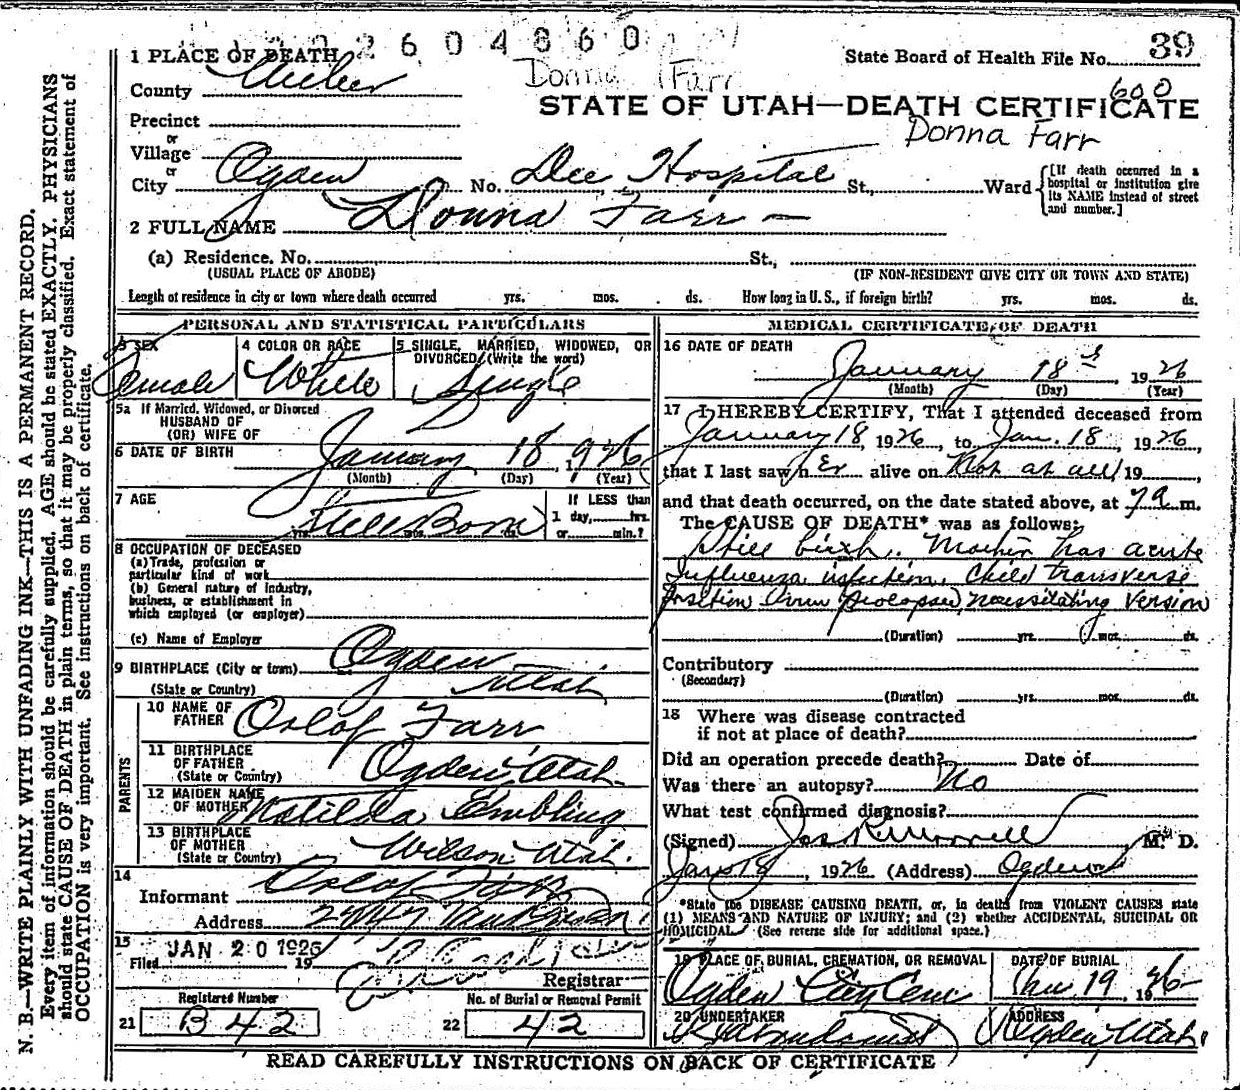 2604860
Donna Farr
State Board of Health File No. 39
600
STATE OF UTAH—DEATH CERTIFICATE
Donna Farr
1 PLACE OF DEATH
County Weber
Precinct
or
Village
or
City Ogden No. Dee Hospital St., Ward
[If death occurred in a hospital or institution give its NAME instead of street and number.]
2 FULL NAME Donna Farr
(a) Residence. No. St.,
(USUAL PLACE OF ABODE) (IF NON-RESIDENT GIVE CITY OR TOWN AND STATE)
Length of residence in city or town where death occurred yrs. mos. ds. How long in U. S., if foreign birth? yrs. mos. ds.
PERSONAL AND STATISTICAL PARTICULARS
3 SEX Female
4 COLOR OR RACE White
5 SINGLE, MARRIED, WIDOWED, OR DIVORCED (Write the word) Single
5a If Married, Widowed, or Divorced
HUSBAND OF
(OR) WIFE OF
6 DATE OF BIRTH January 18, 1926
(Month) (Day) (Year)
7 AGE Still Born
yrs. mos. ds.
If LESS than
1 day, hrs.
or min.?
8 OCCUPATION OF DECEASED
(a) Trade, profession or
particular kind of work
(b) General nature of industry,
business, or establishment in
which employed (or employer)
(c) Name of Employer
9 BIRTHPLACE (City or town) Ogden
(State or Country) Utah
PARENTS
10 NAME OF FATHER Oslof Farr
11 BIRTHPLACE OF FATHER (State or Country) Ogden, Utah
12 MAIDEN NAME OF MOTHER Matilda
13 BIRTHPLACE OF MOTHER (State or Country) Wilson Utah.
14
Informant Oslof Farr
Address
15
Filed JAN 20 1926 19
Registrar
Registered Number
21 B 42
No. of Burial or Removal Permit
22 42
MEDICAL CERTIFICATE OF DEATH
16 DATE OF DEATH
January 18, 1926
(Month) (Day) (Year)
17 I HEREBY CERTIFY, That I attended deceased from
January 18, 1926, to Jan. 18 1926,
that I last saw h Er alive on Not at all, 19
and that death occurred, on the date stated above, at 7 a m.
The CAUSE OF DEATH* was as follows:
Still birth. Mother has acute
Influenza infection. Child transverse
position Arm prolapsed, necessitating version
(Duration) yrs. mos. ds.
Contributory
(Secondary)
(Duration) yrs. mos. ds.
18 Where was disease contracted
if not at place of death?
Did an operation precede death? Date of
Was there an autopsy? No
What test confirmed diagnosis?
(Signed) Jos R Morrell M. D.
Jan 19, 1926 (Address) Ogden
*State the DISEASE CAUSING DEATH, or, in deaths from VIOLENT CAUSES state
(1) MEANS AND NATURE OF INJURY; and (2) whether ACCIDENTAL, SUICIDAL OR
HOMICIDAL. (See reverse side for additional space.)
19 PLACE OF BURIAL, CREMATION, OR REMOVAL
Ogden City Cem
DATE OF BURIAL
19 1926
20 UNDERTAKER
ADDRESS
Ogden, Utah
READ CAREFULLY INSTRUCTIONS ON BACK OF CERTIFICATE
N. B.—WRITE PLAINLY WITH UNFADING INK—THIS IS A PERMANENT RECORD.
Every item of information should be carefully supplied. AGE should be stated EXACTLY. PHYSICIANS
should state CAUSE OF DEATH in plain terms, so that it may be properly classified. Exact statement of
OCCUPATION is very important. See instructions on back of certificate.